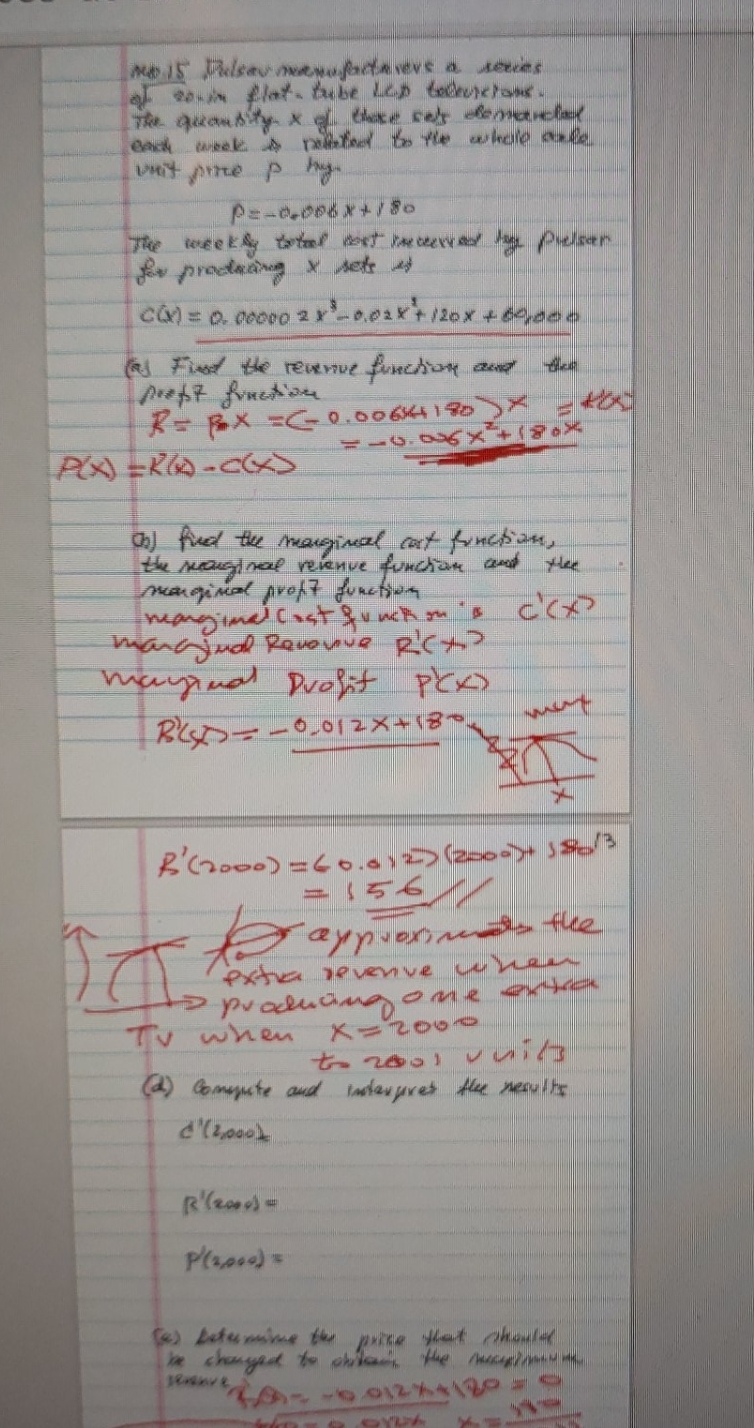 No 15 Pulsar manufacturers a series
of 20-in flat-tube LCD televisions.
The quantity x of these sets demanded
each week is related to the whole sale
unit price p by
P=-0.006x+180
The weekly total cost incurred by Pulsar
for producing x sets is
C(x) = 0.000002x³-0.02x²+120x+60,000
(a) Find the revenue function and the
profit function
R = p·x = (-0.006x+180)x = R(x)
= -0.006x²+180x
P(x) = R(x) - C(x)
(b) find the marginal cost function,
the marginal revenue function and the
marginal profit function
marginal Cost function is C'(x)
marginal Revenue R'(x)
marginal Profit P'(x)
R'(x) = -0.012x+180
x
R'(2000) = (-0.012)(2000)+180
= 156 //
approximates the
extra revenue when
producing one extra
TV when x=2000
to 2001 units
(d) Compute and interpret the results
C'(2,000)=
R'(2000) =
P'(2,000) =
(e) Determine the price that should
be charged to obtain the maximum
revenue
R'(x) = -0.012x+180 = 0